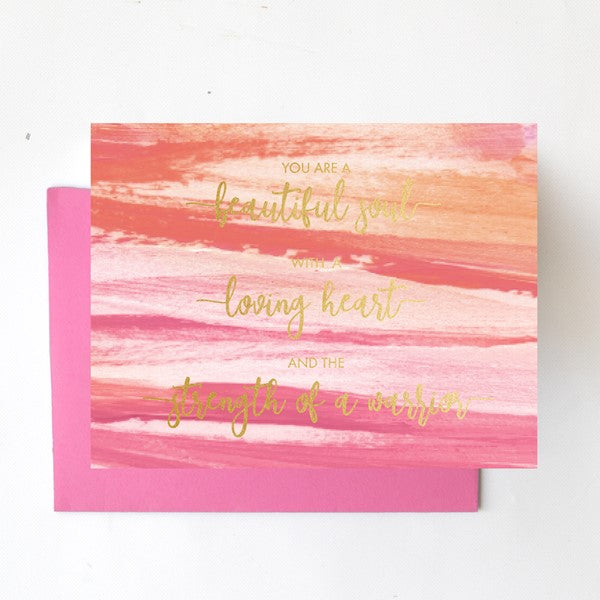 YOU ARE A
beautiful soul
WITH A
loving heart
AND THE
strength of a warrior